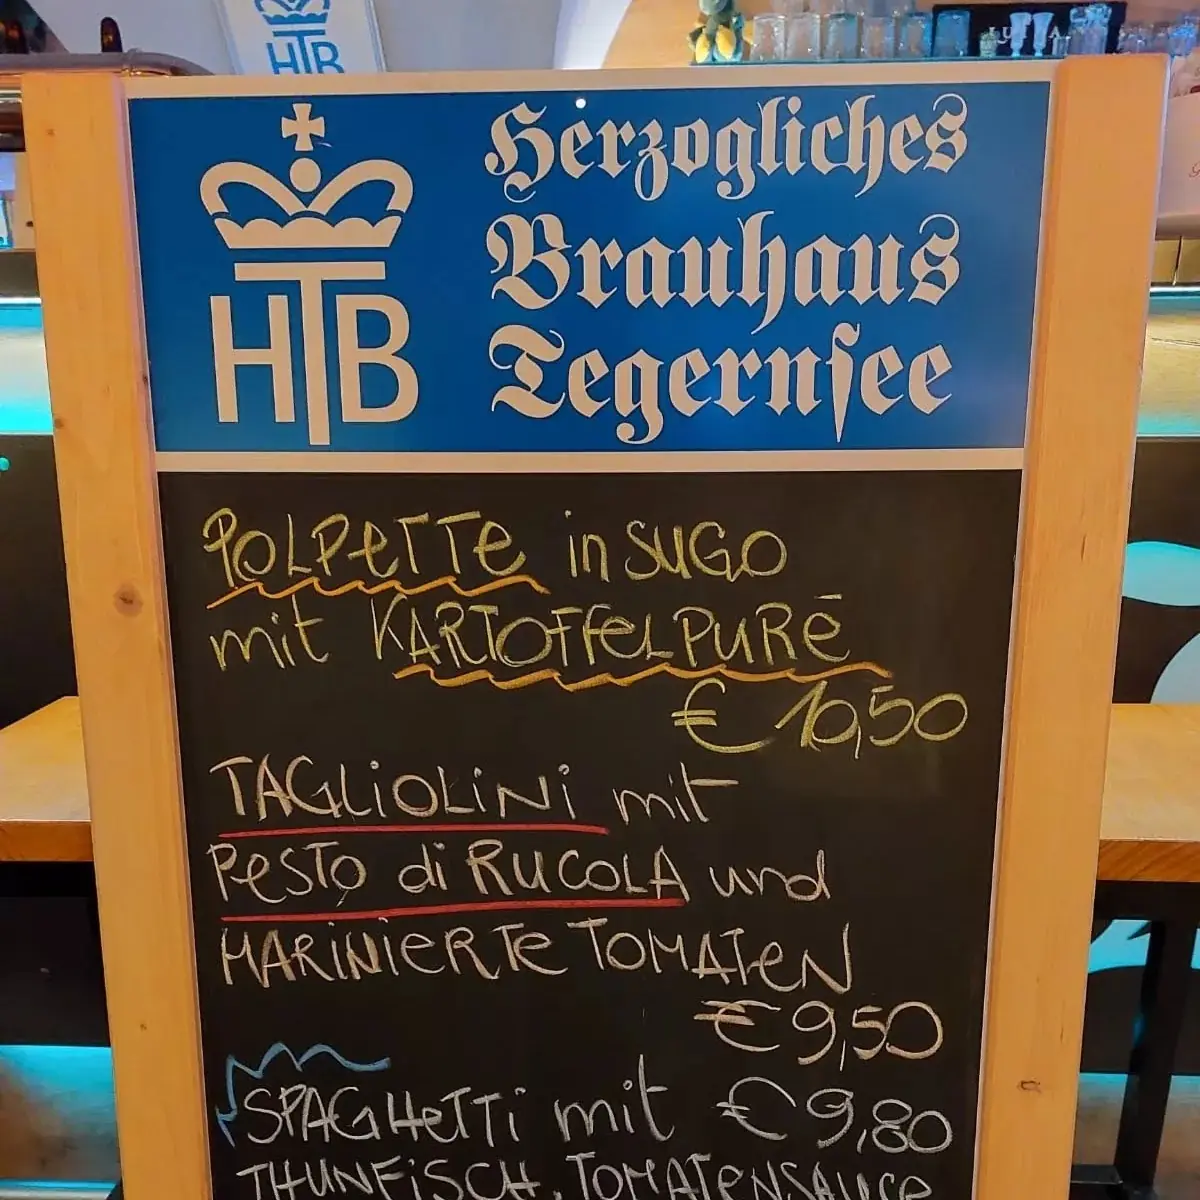 HTB
HTB
Herzogliches
Brauhaus
Tegernsee
POLPETTE in SUGO
mit KARTOFFELPURÉ
€ 10,50
TAGLIOLINI mit
PESTO di RUCOLA und
MARINIERTE TOMATEN
€ 9,50
SPAGHETTI mit € 9,80
THUNFISCH, TOMATENSAUCE